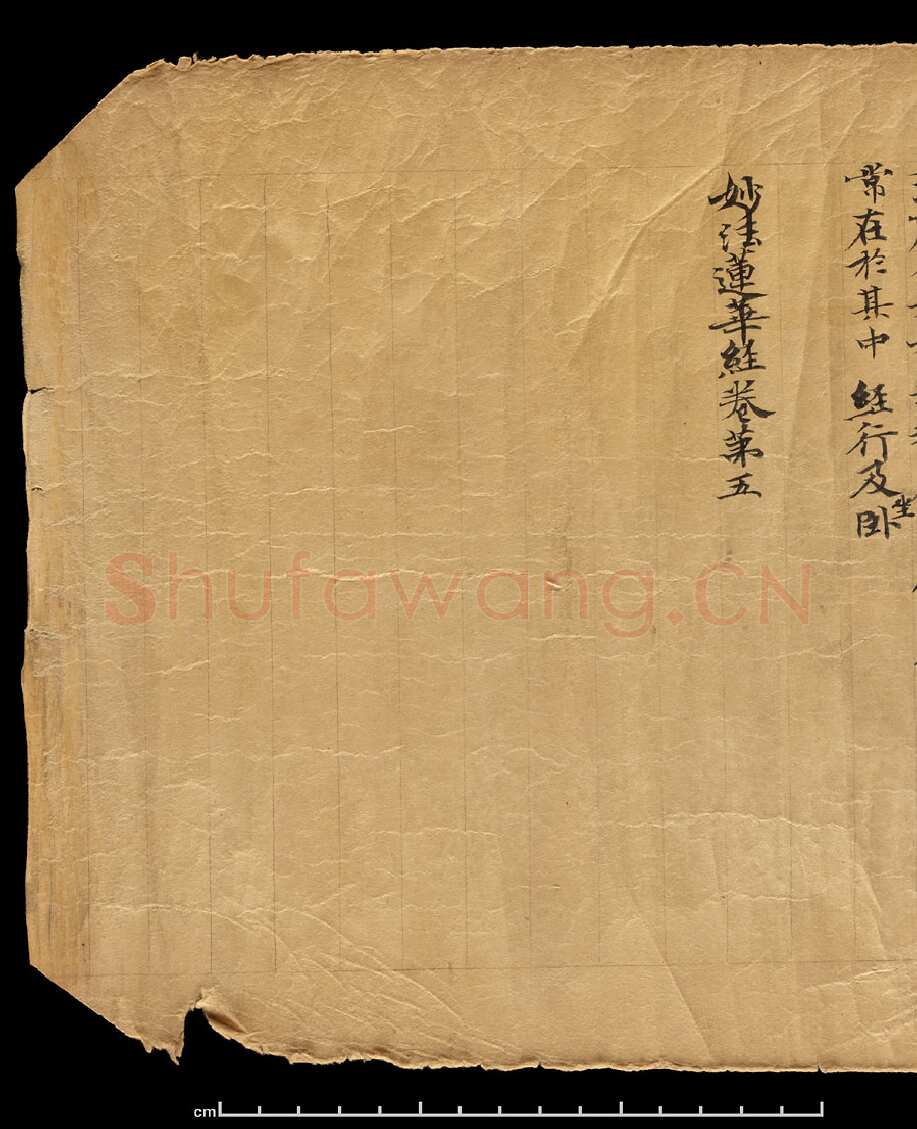 常在於其中 經行及坐卧
妙法蓮華經卷第五
Shufawang.CN
cm